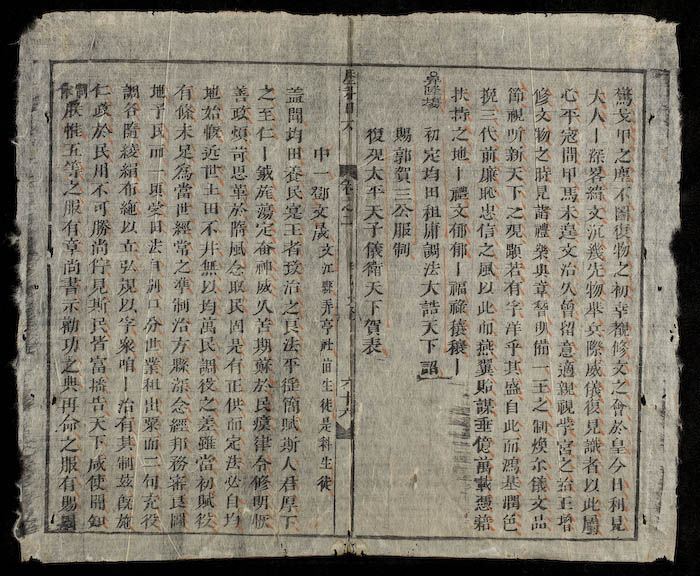 驚戔甲之塵不圖復物之初幸穫修文之會於皇今日利見
大人丨深畧緯文沉幾先物舉兵際威儀復見識者以此屬
心平寇間甲馬未遑文治久曾招意適親視紫宮之治玉增
修文物之時見諸禮樂典章暫明備一王之制煥示儀文品
節視聽新天下之觀顒若有字洋乎其盛自此而鴻基潤色
挽三代前廉恥忠信之風以此而燕翼貽謀垂億萬載憑藉
扶持之地丨禮文郁郁丨福祿穰穰丨
初定均田租庸調法大誥天下詔
賜郭賀三公服制
復覩太平天子儀衛天下賀表
中一鄧文 文江縣弄亭社 生徒是科生徒
蓋聞均田養民寔王者致治之良法平徭簡賦斯人君厚下
之至仁丨戢旄蕩定奋神威久苦期蘇於民瘼律令修明恢
善政頻苛思革於隋風念取民固是有正供而定法必自均
地始輓近世土田不井無以均萬民調役之差雖當初賦役
有條未足為當世經常之準制治方縣深念經邦務審民圖
地予民而一頃受田法自割口分世業租出粟而二旬充役
調各隨綾絹布絁以立弘規以孚衆咱丨治有其制茲旣施
仁政於民用不可勝尚佇見斯民皆富播告天下咸使聞知
服惟五等之服有章尚書示勸功之典再命之服有賜